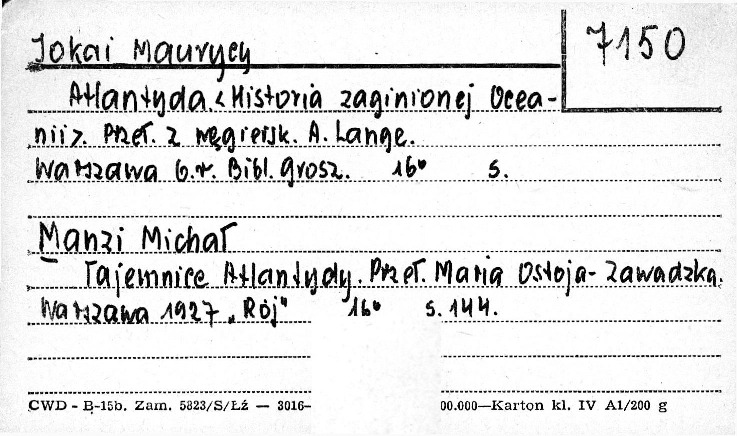 Jokai Maurycy
7150
Atlantyda. <Historia zaginionej Ocea-
nii>. Przeł. z węgiersk. A. Lange.
Warszawa b.r. Bibl. Grosz. 16° s.
Manzi Michał
Tajemnice Atlantydy. Przeł. Maria Ostoja-Zawadzka.
Warszawa 1927 „Rój" 16° s. 144.
CWD - B-15b. Zam. 5823/S/Łź — 3016— 00.000—Karton kl. IV A1/200 g